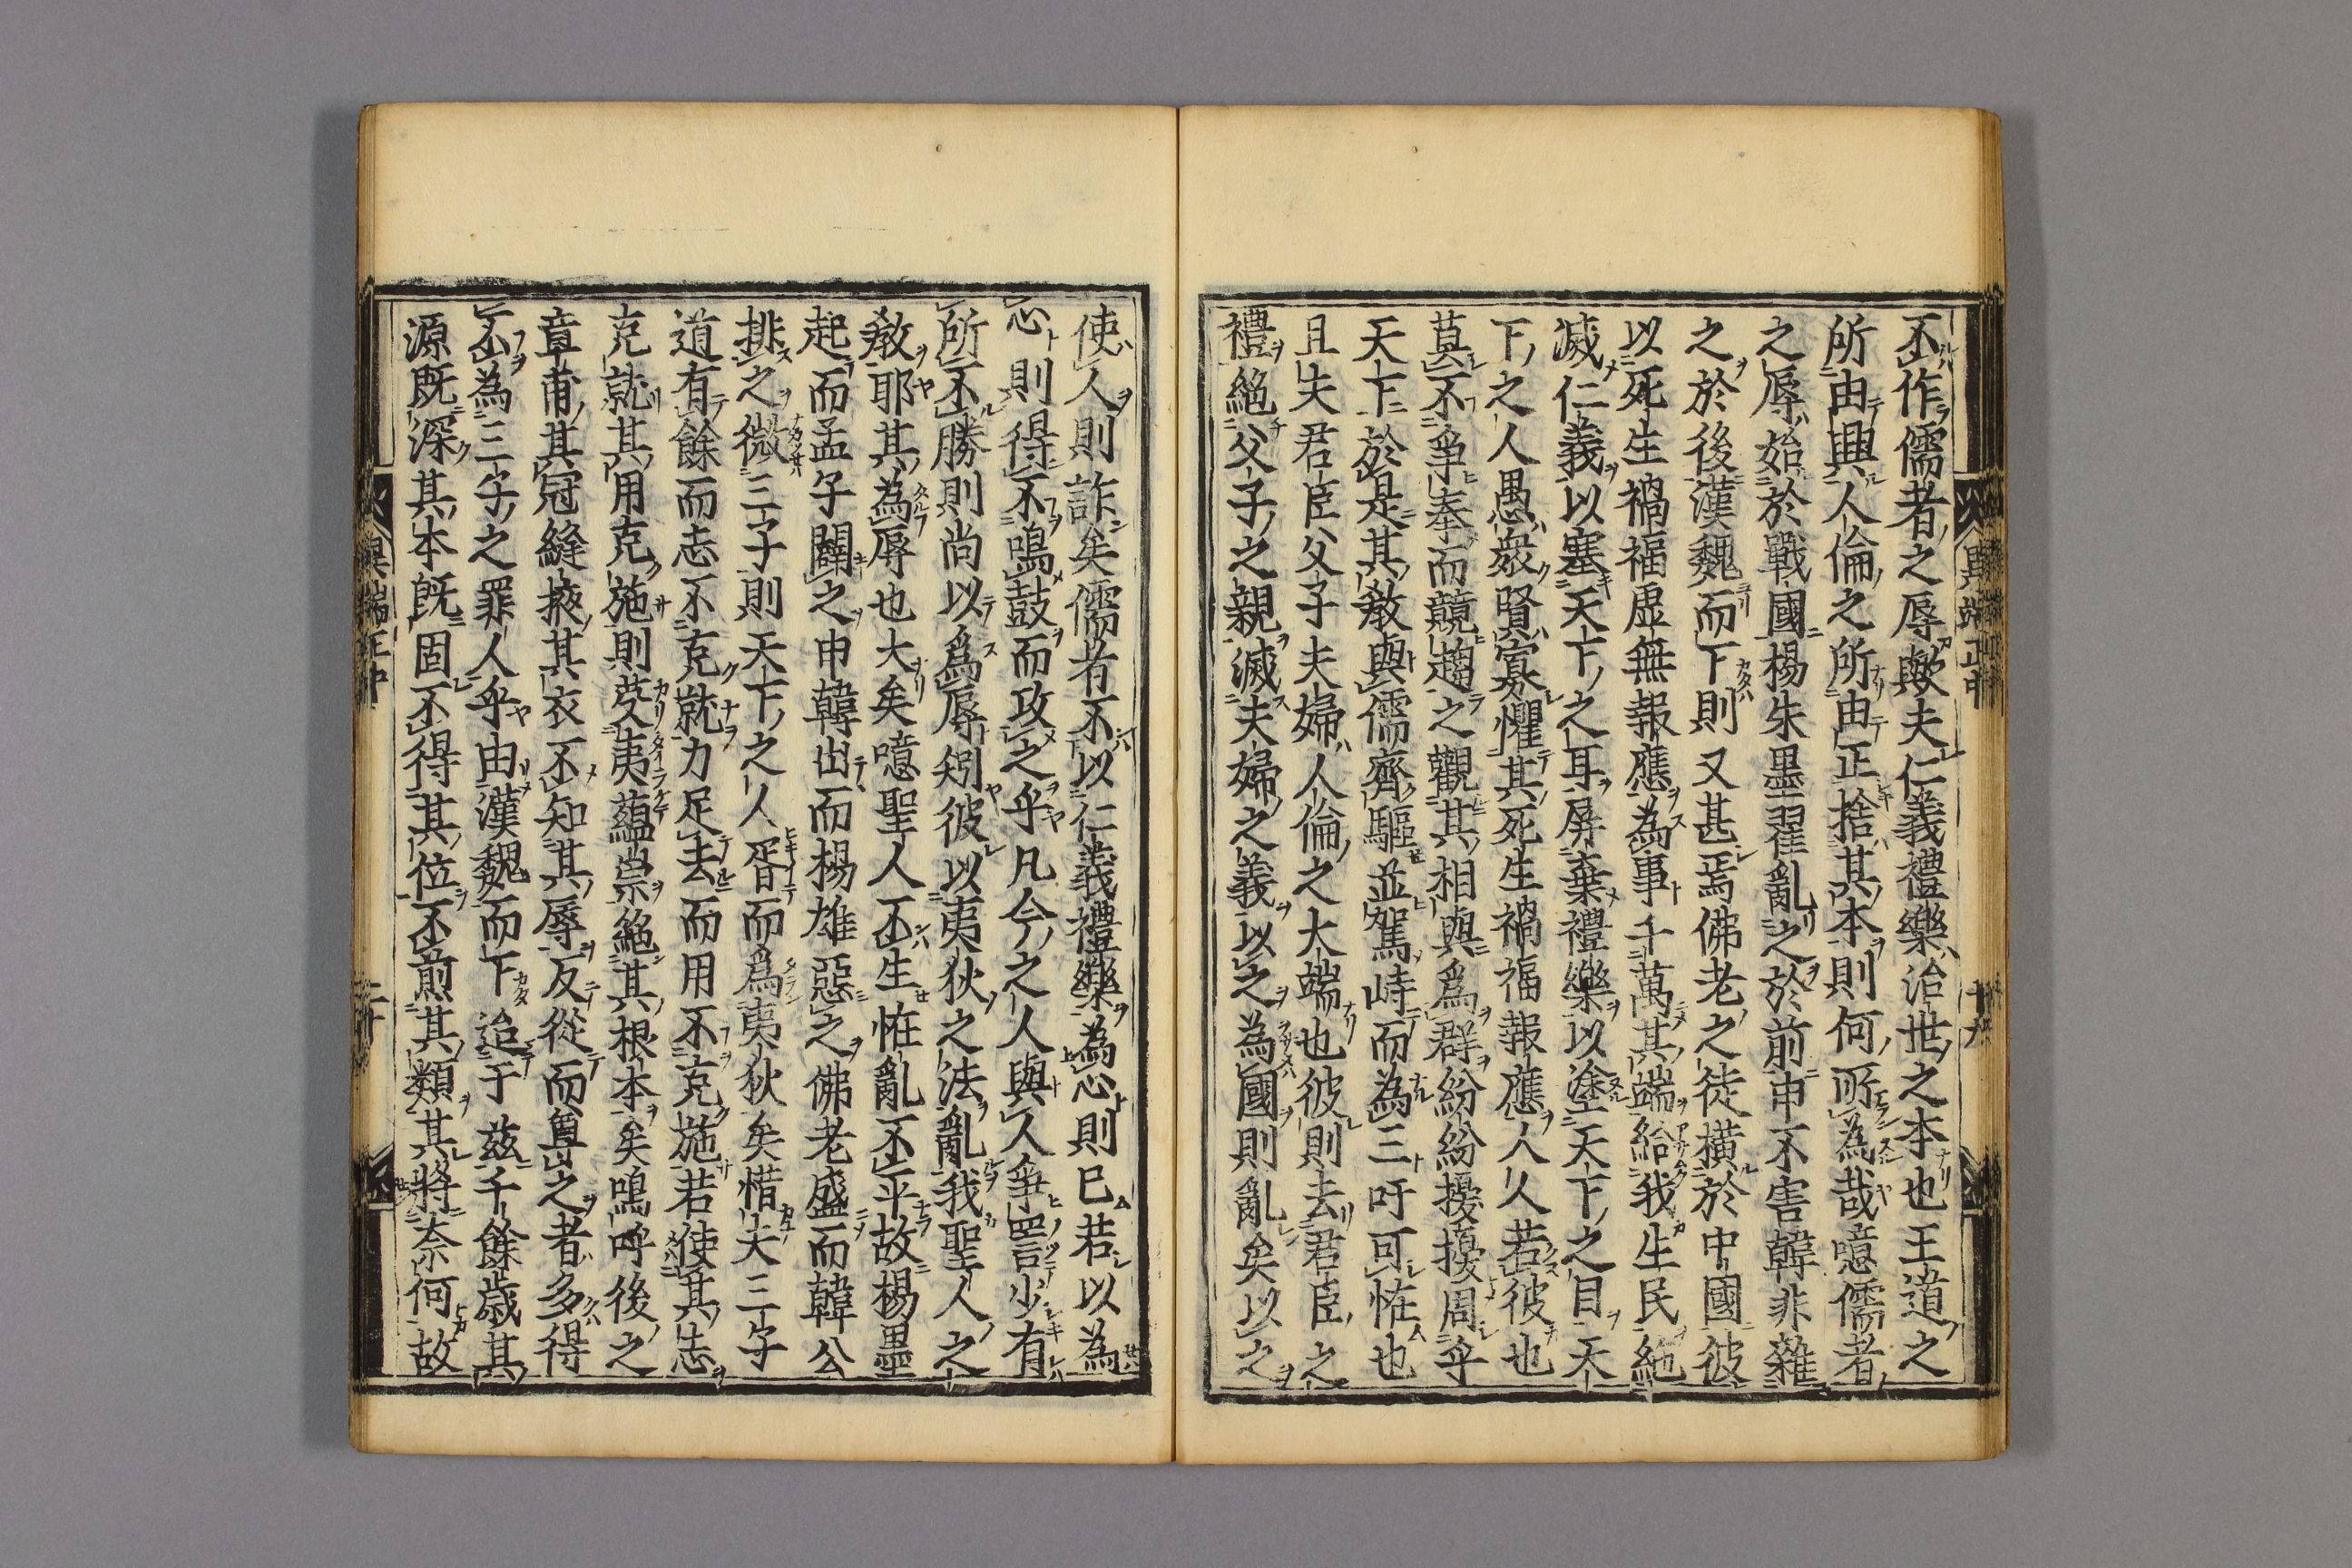 不作儒者之辱歟夫仁義禮樂治世之本也王道之
所由興人倫之所由正捨其本則何所為哉噫儒者
之辱始於戰國楊朱墨翟亂之於前申不害韓非雜
之於後漢魏而下則又甚焉佛老之徒橫於中國彼
以死生禍福虛無報應為事千萬其端紿我生民絶
滅仁義以塞天下之耳屏棄禮樂以塗天下之目天
下之人愚衆賢寡懼其死生禍福報應人人若彼也
莫不爭奉而競趨之觀其相與為群紛紛擾擾周乎
天下於是其教與儒齊驅並駕峙而為三吁可恠也
且夫君臣父子夫婦人倫之大端也彼則去君臣之
禮絶父子之親滅夫婦之義以之為國則亂矣以之
異端正中
十九
使人則詐矣儒者不以仁義禮樂為心則已若以為
心則得不鳴鼓而攻之乎凡今之人與人爭詈少有
所不勝則尚以為辱矧彼以夷狄之法亂我聖人之
教耶其為辱也大矣噫聖人不生恠亂不平故楊墨
起而孟子闢之申韓出而楊雄惡之佛老盛而韓公
排之微三子則天下之人胥而為夷狄矣惜夫三子
道有餘而志不克就力足去而用不克施若使其志
克就其用克施則芟夷蘊崇絶其根本矣嗚呼後之
章甫其冠縫掖其衣不知其辱反從而尊之者多得
不為三子之罪人乎由漢魏而下迨于茲千餘歲其
源既深其本既固不得其位不煎其類其將奈何故
異端正中
二十